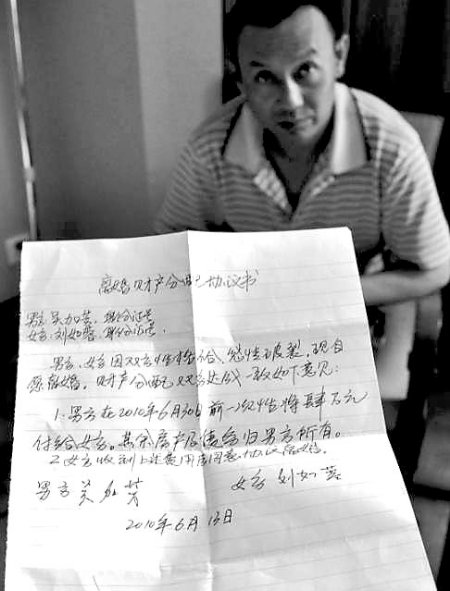 离婚财产分配协议书
男方:吴加芳,身份证号
女方:刘如蓉,身份证号
男方、女方因双方性格不合,感情破裂,现自
愿离婚。财产分配双方达成一致如下意见:
1.男方在2010年6月30日前一次性将肆万元
付给女方。其余房产及债务归男方所有。
2.女方收到上述费用后同意协议离婚。
男方 吴加芳 女方 刘如蓉
2010年6月13日